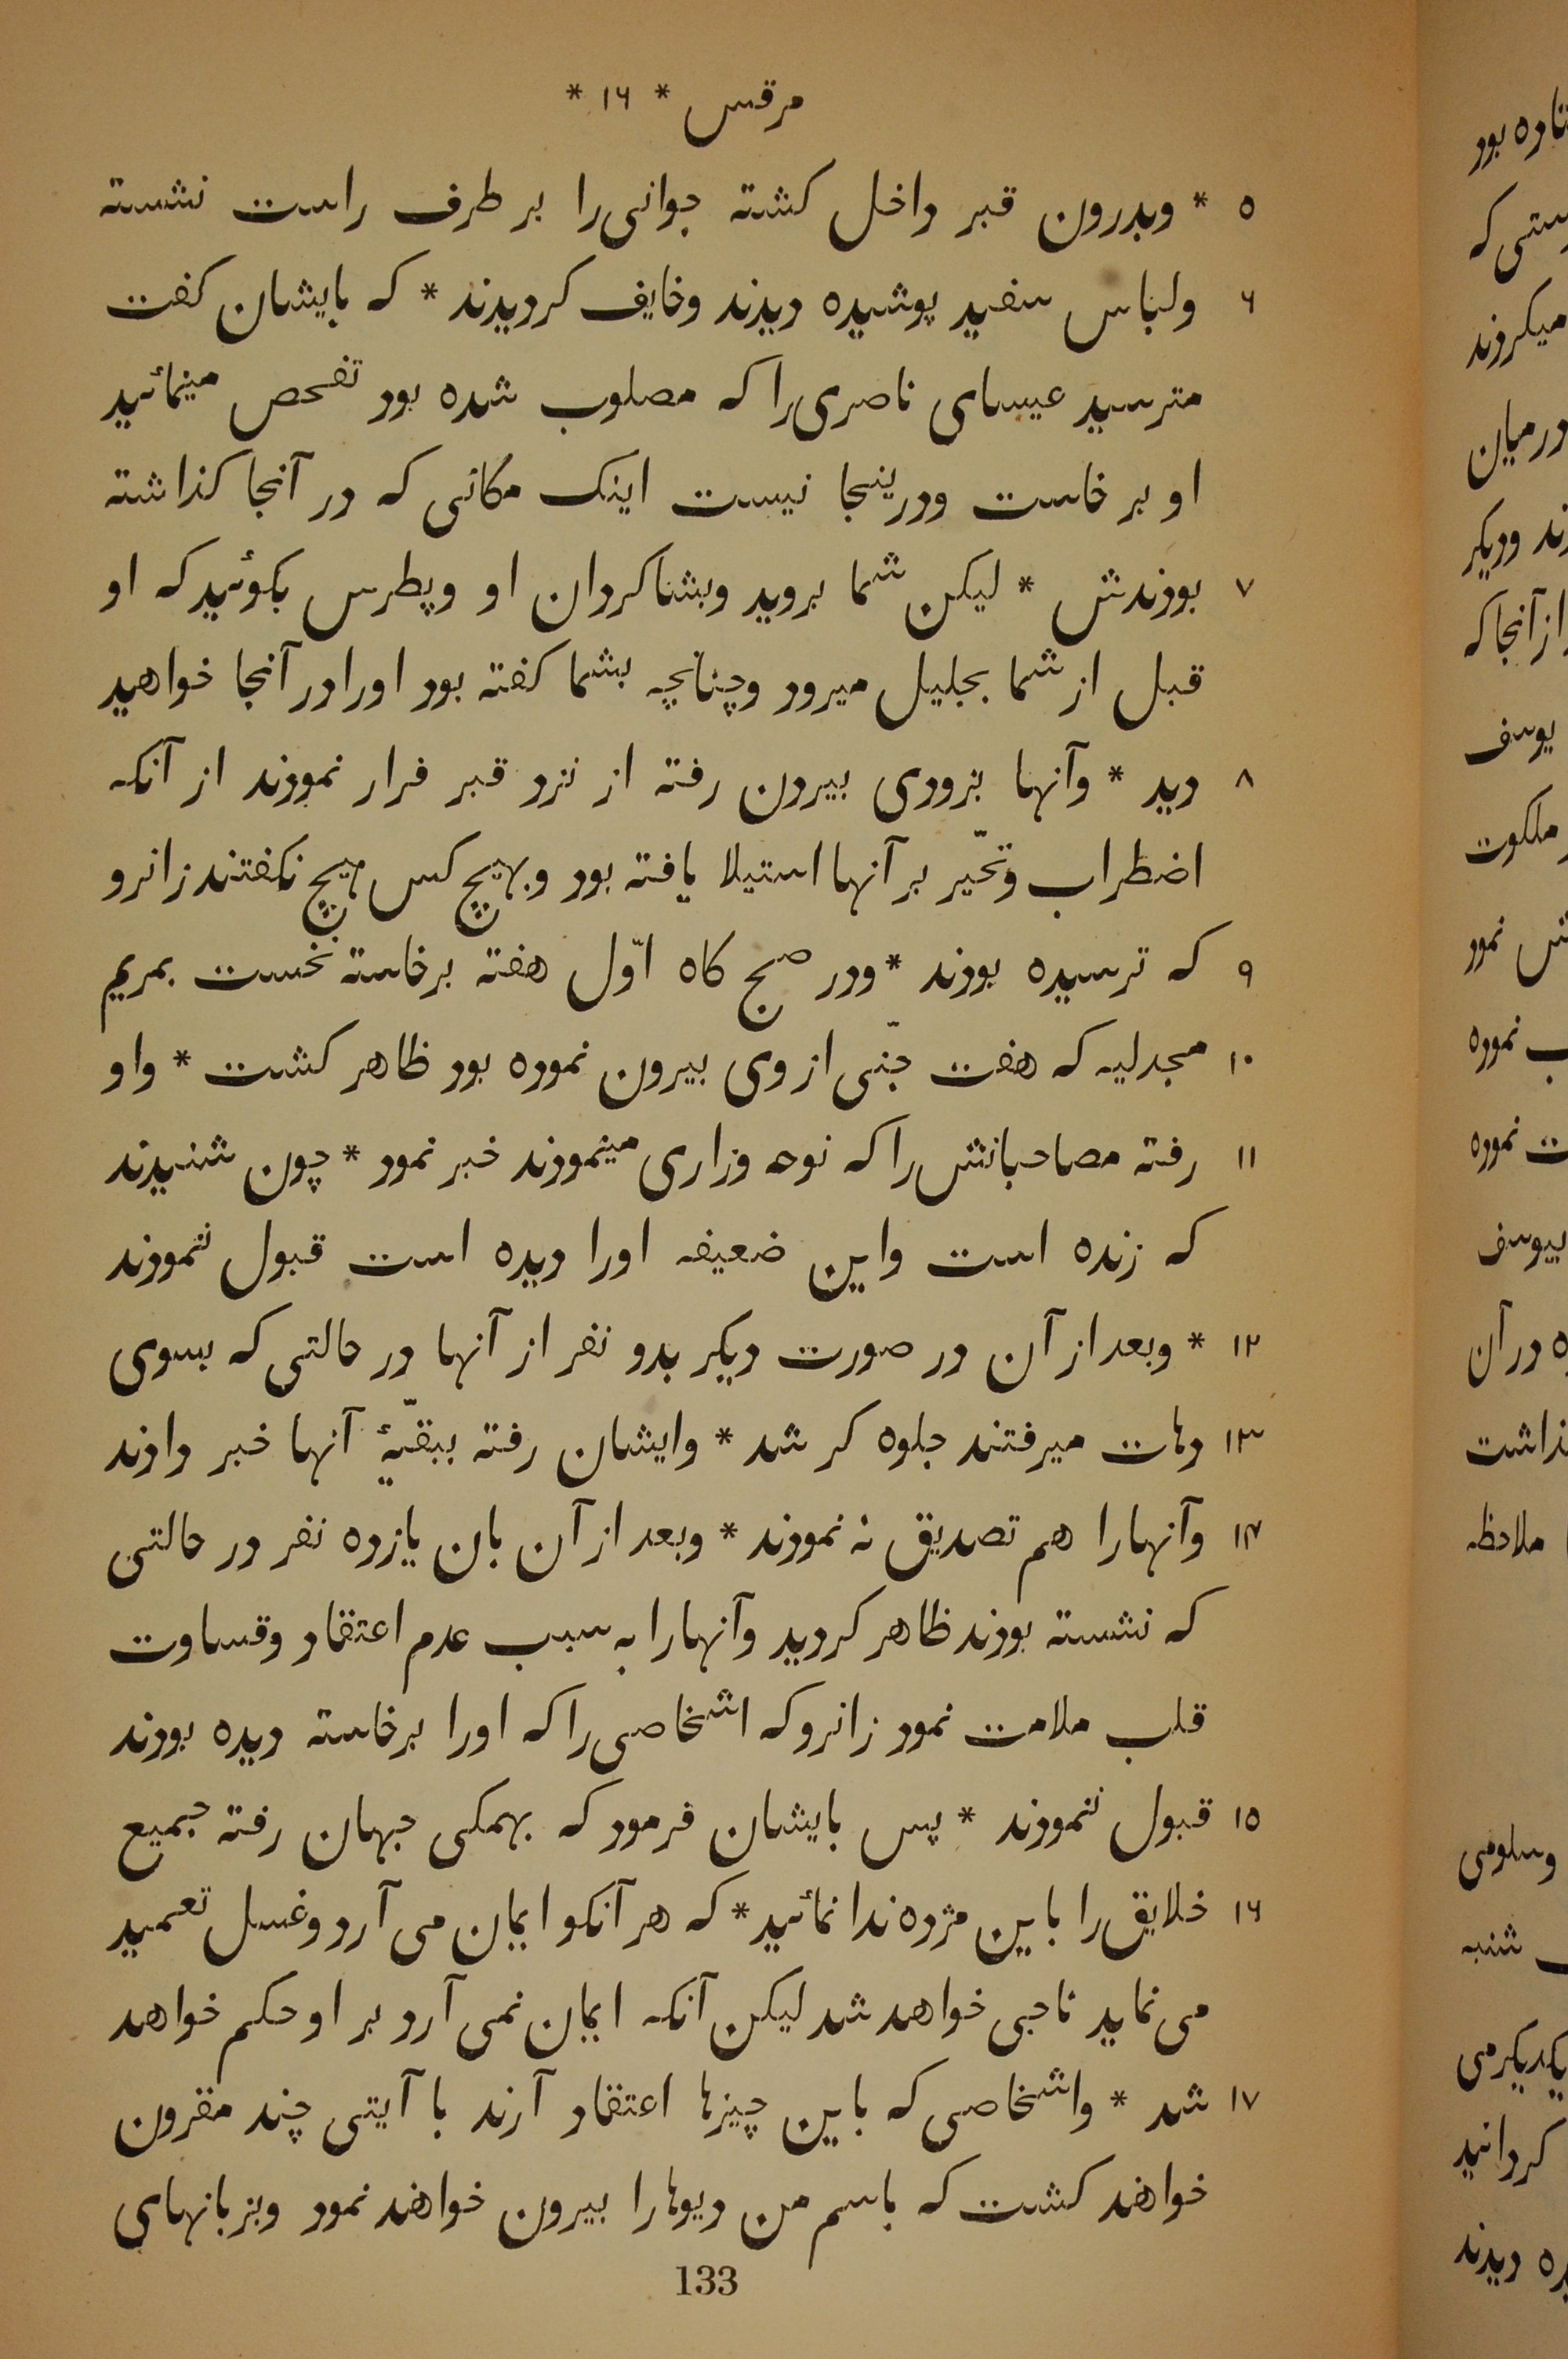 مرقس * ۱۶ *
۵ * وبدرون قبر داخل کشته جوانی‌را بر طرف راست نشسته
۶ ولباس سفید پوشیده دیدند وخایف کردیدند * که بایشان کفت
مترسید عیسای ناصری‌را که مصلوب شده بود تفحص مینمائید
او بر خاست ودرینجا نیست اینک مکانی که در آنجا کذاشته
۷ بودندش * لیکن شما بروید وبشاکردان او وپطرس بکوئید که او
قبل از شما بجلیل میرود وچنانچه بشما کفته بود اورا در آنجا خواهید
۸ دید * وآنها بزودی بیرون رفته از نزد قبر فرار نمودند از آنکه
اضطراب وتحیّر بر آنها استیلا یافته بود وبهیچ کس هیچ نکفتند زانرو
۹ که ترسیده بودند * ودر صبح کاه اوّل هفته برخاسته نخست بمریم
۱۰ مجدلیه که هفت جنّی از وی بیرون نموده بود ظاهر کشت * واو
۱۱ رفته مصاحبانش را که نوحه وزاری مینمودند خبر نمود * چون شنیدند
که زنده است واین ضعیفه اورا دیده است قبول ننمودند
۱۲ * وبعد از آن در صورت دیکر بدو نفر از آنها در حالتی که بسوی
۱۳ دهات میرفتند جلوه کر شد * وایشان رفته ببقیّهٔ آنها خبر دادند
۱۴ وآنهارا هم تصدیق نه نمودند * وبعد از آن بان یازده نفر در حالتی
که نشسته بودند ظاهر کردید وآنهارا به سبب عدم اعتقاد وقساوت
قلب ملامت نمود زانرو که اشخاصی‌را که اورا برخاسته دیده بودند
۱۵ قبول ننمودند * پس بایشان فرمود که بهمکی جهان رفته جمیع
۱۶ خلایق‌را باین مژده ندا نمائید * که هر آنکو ایمان می آرد وغسل تعمید
می نماید ناجی خواهد شد لیکن آنکه ایمان نمی آرد بر او حکم خواهد
۱۷ شد * واشخاصی که باین چیزها اعتقاد آرند با آیتی چند مقرون
خواهند کشت که باسم من دیوهارا بیرون خواهند نمود وبزبانهای
133
بود
که
میکردند
درمیان
ودیکر
از آنجا که
یوسف
ملکوت
نمود
نموده
نموده
بیوسف
در آن
ملاحظه
وسلومی
شنبه
می
کردانید
دیدند